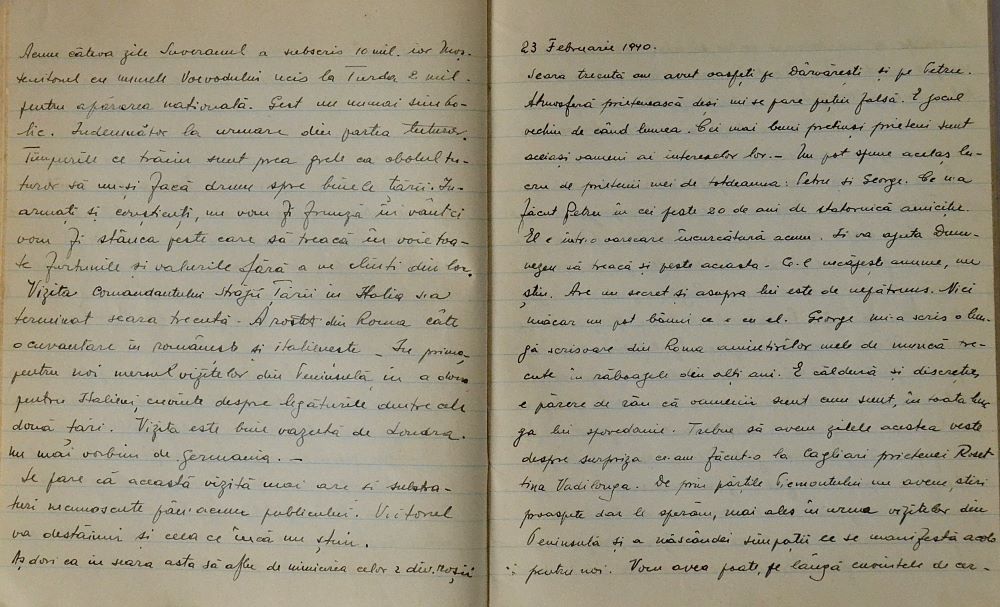 Acum câteva zile Suveranul a subscris 10 mil. iar Moș-
tenitorul cu numele Voevodului ucis la Turda 2 mil.
pentru apărarea națională. Gest nu numai simbo-
lic. Indemnător la urmare din partea tuturor.
Timpurile ce trăim sunt prea grele ca obolul tu-
turor să nu-și facă drum spre binele țării. In-
armați și conștienți, nu vom fi frunză în vânt ci
vom fi stânca peste care să treacă în voie toa-
te furtunile și valurile fără a ne clinti din loc.
Vizita Comandantului Străjii Țării în Italia s-a
terminat seara trecută. A rostit din Roma câte
o cuvantare în românește și italienește - In prima,
pentru noi mersul vizitelor din Peninsulă, in a doua
pentru Italieni, cuvinte despre legăturile dintre cele
două țari. Vizita este bine vazută de Londra.
nu mai vorbim de Germania. -
Se pare că această vizită mai are și substra-
turi necunoscute până acum publicului. Viitorul
va destăinui și ceea ce încă nu știm.
Aș dori ca in seara asta să aflu de nimicirea celor 2 div. roșii
23 Februarie 1940.
Seara trecută am avut oaspeți pe Dărvărești și pe Petru.
Atmosferă prietenească desi mi se pare puțin falsă. E jocul
vechiu de când lumea. Cei mai buni pretinși prieteni sunt
aceiași oameni ai intereselor lor. - Nu pot spune acelaș lu-
cru de prietenii mei de totdeauna: Petru si George. Ce n-a
făcut Petru în cei peste 20 de ani de statornică amiciție.
El e intr-o oarecare încurcătură acum. Ii va ajuta Dum-
nezeu să treacă și peste aceasta. Ce-l necăjește anume, nu
știu. Are un secret și asupra lui este de nepătruns. Nici
măcar nu pot bănui ce e cu el. George mi-a scris o lun-
gă scrisoare din Roma amintirilor mele de muncă tre-
cute în răboagele din alți ani. E căldură și discreție,
e părere de rău că oamenii sunt cum sunt, în toata lun-
ga lui spovedanie. Trebue să avem zilele acestea veste
despre surpriza ce-am făcut-o la Cagliari prietenei Roset-
tina Vadilonga. De prin părțile Piemontului nu avem știri
proaspete dar le sperăm, mai ales în urma vizitelor din
Peninsulă și a născândei simpatii ce se manifestă acolo
pentru noi. Vom avea poate, pe lângă cuvintele de cer-